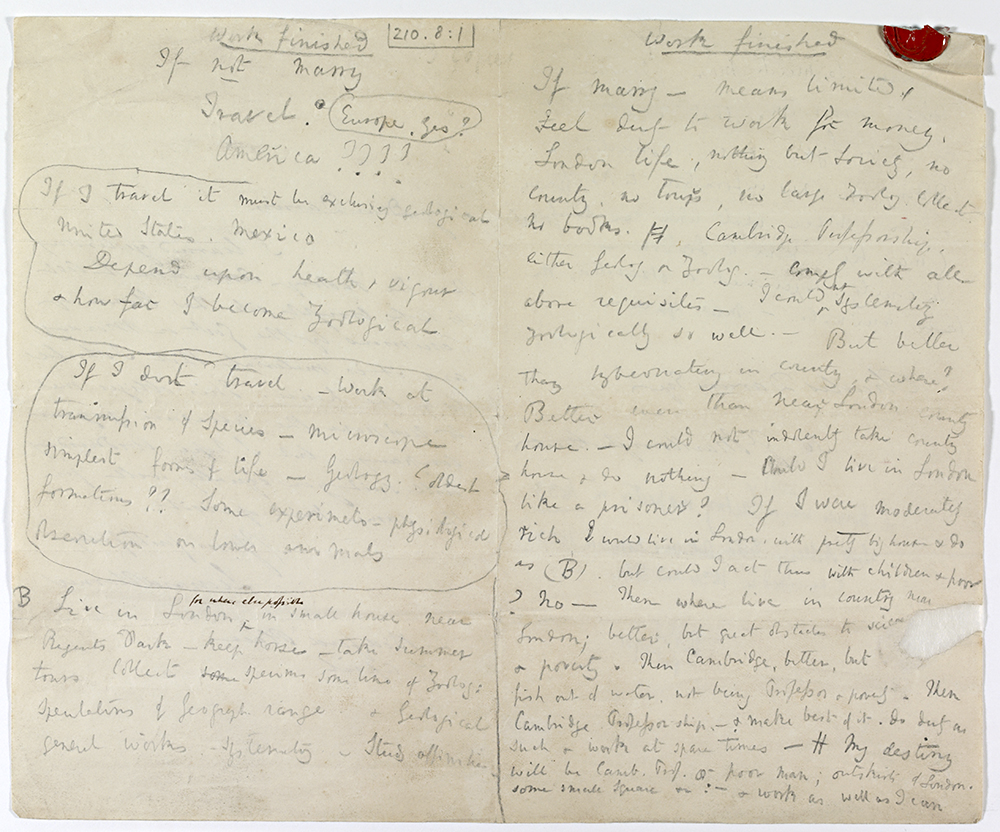 Work finished
210.8:1
If not marry
Travel. Europe, yes?
America ????
If I travel it must be exclusively geological
United States. Mexico
Depend upon health & vigour
& how far I become Zoological
If I dont travel. — Work at
transmission of Species — microscope
simplest forms of life — Geology. ? oldest
formations ?? Some experiments — physiological
observation on lower animals
B Live in London for where else possible in small house, near
Regents Park — keep horse — take Summer
tours collect some specimens some line of Zoolog:
Speculations of Geograph. range & Geological
general works. — Systematiz — Study affinities.
Work finished
If marry — means limited,
Feel duty to work for money.
London life, nothing but Society, no
country, no tours, no large Zoolog. Collect.
no books. Cambridge Professorship,
either Geolog. or Zoolog. — comply with all
above requisites — I could not systematiz
zoologically so well. — But better
than hybernating in country, & where?
Better even than near London country
house. — I could not indolently take country
house & do nothing — Could I live in London
like a prisoner? If I were moderately
rich I would live in London, with pretty big house & do
as (B), but could I act thus with children & poor
? No — Then where live in country near
London; better, but great obstacles to science
& poverty. Then Cambridge, better, but
fish out of water, not being Professor & poverty. Then
Cambridge Professorship, — & make best of it, do duty as
such & work at spare times — My destiny
will be Camb. Prof. or poor man; outskirts of London,
some small Square &c: — & work as well as I can